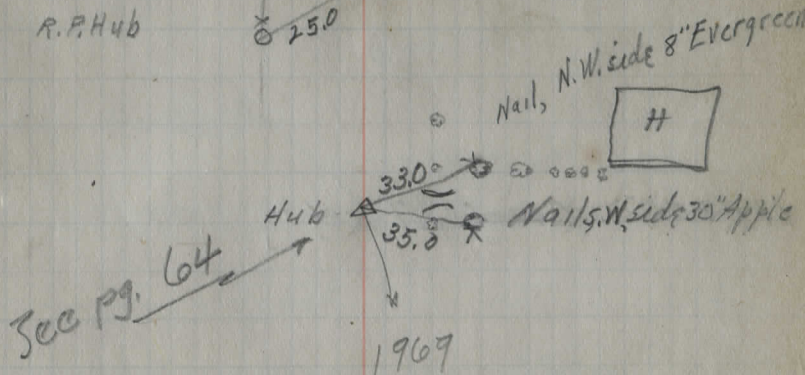 R.P. Hub
25.0
Nail, N.W. side 8" Evergreen
H
33.0
Hub
35.0
Nail S.W. side 30" Apple
See pg. 64
1969